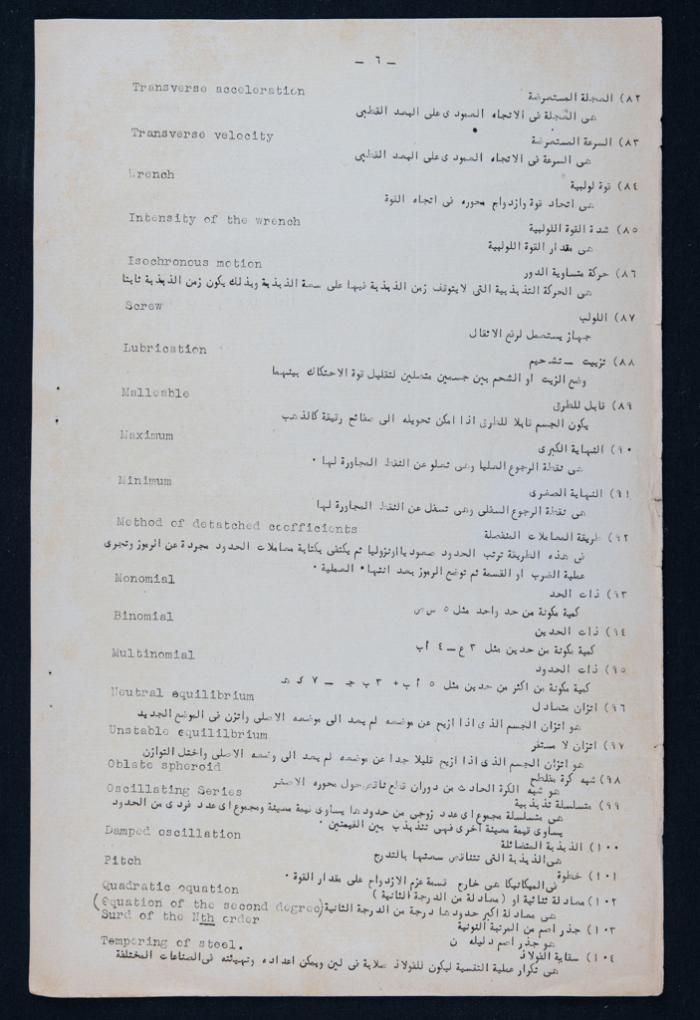 — ٦ —
Transverse acceleration
٨٢) العجلة المستعرضة
هى العجلة فى الاتجاه العمودى على البعد القطبى
Transverse velocity
٨٣) السرعة المستعرضة
هى السرعة فى الاتجاه العمودى على البعد القطبى
Wrench
٨٤) قوة لولبية
هى اتحاد قوة وازدواج محوره فى اتجاه القوة
Intensity of the wrench
٨٥) شدة القوة اللولبية
هى مقدار القوة اللولبية
Isochronous motion
٨٦) حركة متساوية الدور
هى الحركة التذبذبية التى لايتوقف زمن الذبذبة فيها على سعة الذبذبة وبذلك يكون زمن الذبذبة ثابتا
Screw
٨٧) اللولب
جهاز يستعمل لرفع الاثقال
Lubrication
٨٨) تزييت — تشحيم
وضع الزيت او الشحم بين جسمين متصلين لتقليل قوة الاحتكاك بينهما
Malleable
٨٩) قابل للطرق
يكون الجسم قابلا للطرق اذا امكن تحويله الى صفائح رقيقة كالذهب
Maximum
٩٠) النهاية الكبرى
هى نقطة الرجوع العليا وهى تعلو عن النقط المجاورة لها ٠
Minimum
٩١) النهاية الصغرى
هى نقطة الرجوع السفلى وهى تسفل عن النقط المجاورة لها
Method of detatched coefficients
٩٢) طريقة المعاملات المنفصلة
فى هذه الطريقة ترتب الحدود صعوديا اوتزوليا ثم يكتفى بكتابة معاملات الحدود مجردة عن الرموز وتجرى
عملية الضرب او القسمة ثم توضع الرموز بعد انتهاء العملية ٠
Monomial
٩٣) ذات الحد
كمية مكونة من حد واحد مثل ٥ س ص
Binomial
٩٤) ذات الحدين
كمية مكونة من حدين مثل ٣ ع — ٤ أب
Multinomial
٩٥) ذات الحدود
كمية مكونة من اكثر من حدين مثل ٥ أب + ٣ ب جـ — ٧ ى هـ
Neutral equilibrium
٩٦) اتزان متعادل
هو اتزان الجسم الذى اذا ازيح عن موضعه لم يعد الى موضعه الاصلى واتزن فى الموضع الجديد
Unstable equililbrium
٩٧) اتزان لا مستقر
هو اتزان الجسم الذى اذا ازيح قليلا جدا عن موضعه لم يعد الى وضعه الاصلى واختل التوازن
Oblate spheroid
٩٨) شبه كرة مفلطح
هو شبه الكرة الحادث من دوران قطع ناقص حول محوره الاصغر
Oscillating Series
٩٩) متسلسلة تذبذبية
هى متسلسلة مجموع اى عدد زوجى من حدودها يساوى قيمة معينة ومجموع اى عدد فردى من الحدود
يساوى قيمة معينة اخرى فهى تتذبذب بين القيمتين ٠
Damped oscillation
١٠٠) الذبذبة المتضائلة
هى الذبذبة التى تتناقص سعتها بالتدرج
Pitch
١٠١) خطوة
فى الميكانيكا هى خارج قسمة عزم الازدواج على مقدار القوة ٠
Quadratic equation
١٠٢) معادلة ثنائية او (معادلة من الدرجة الثانية)
(equation of the second degree)
هى معادلة اكبر حدودها درجة من الدرجة الثانية
Surd of the Nth order
١٠٣) جذر اصم من المرتبة النونية
هو جذر اصم دليله ن
Tempering of steel.
١٠٤) سقاية الفولاذ
هى تكرار عملية التقسية ليكون للفولاذ صلابة فى لين ويمكن اعداده وتهيئته فى الصناعات المختلفة